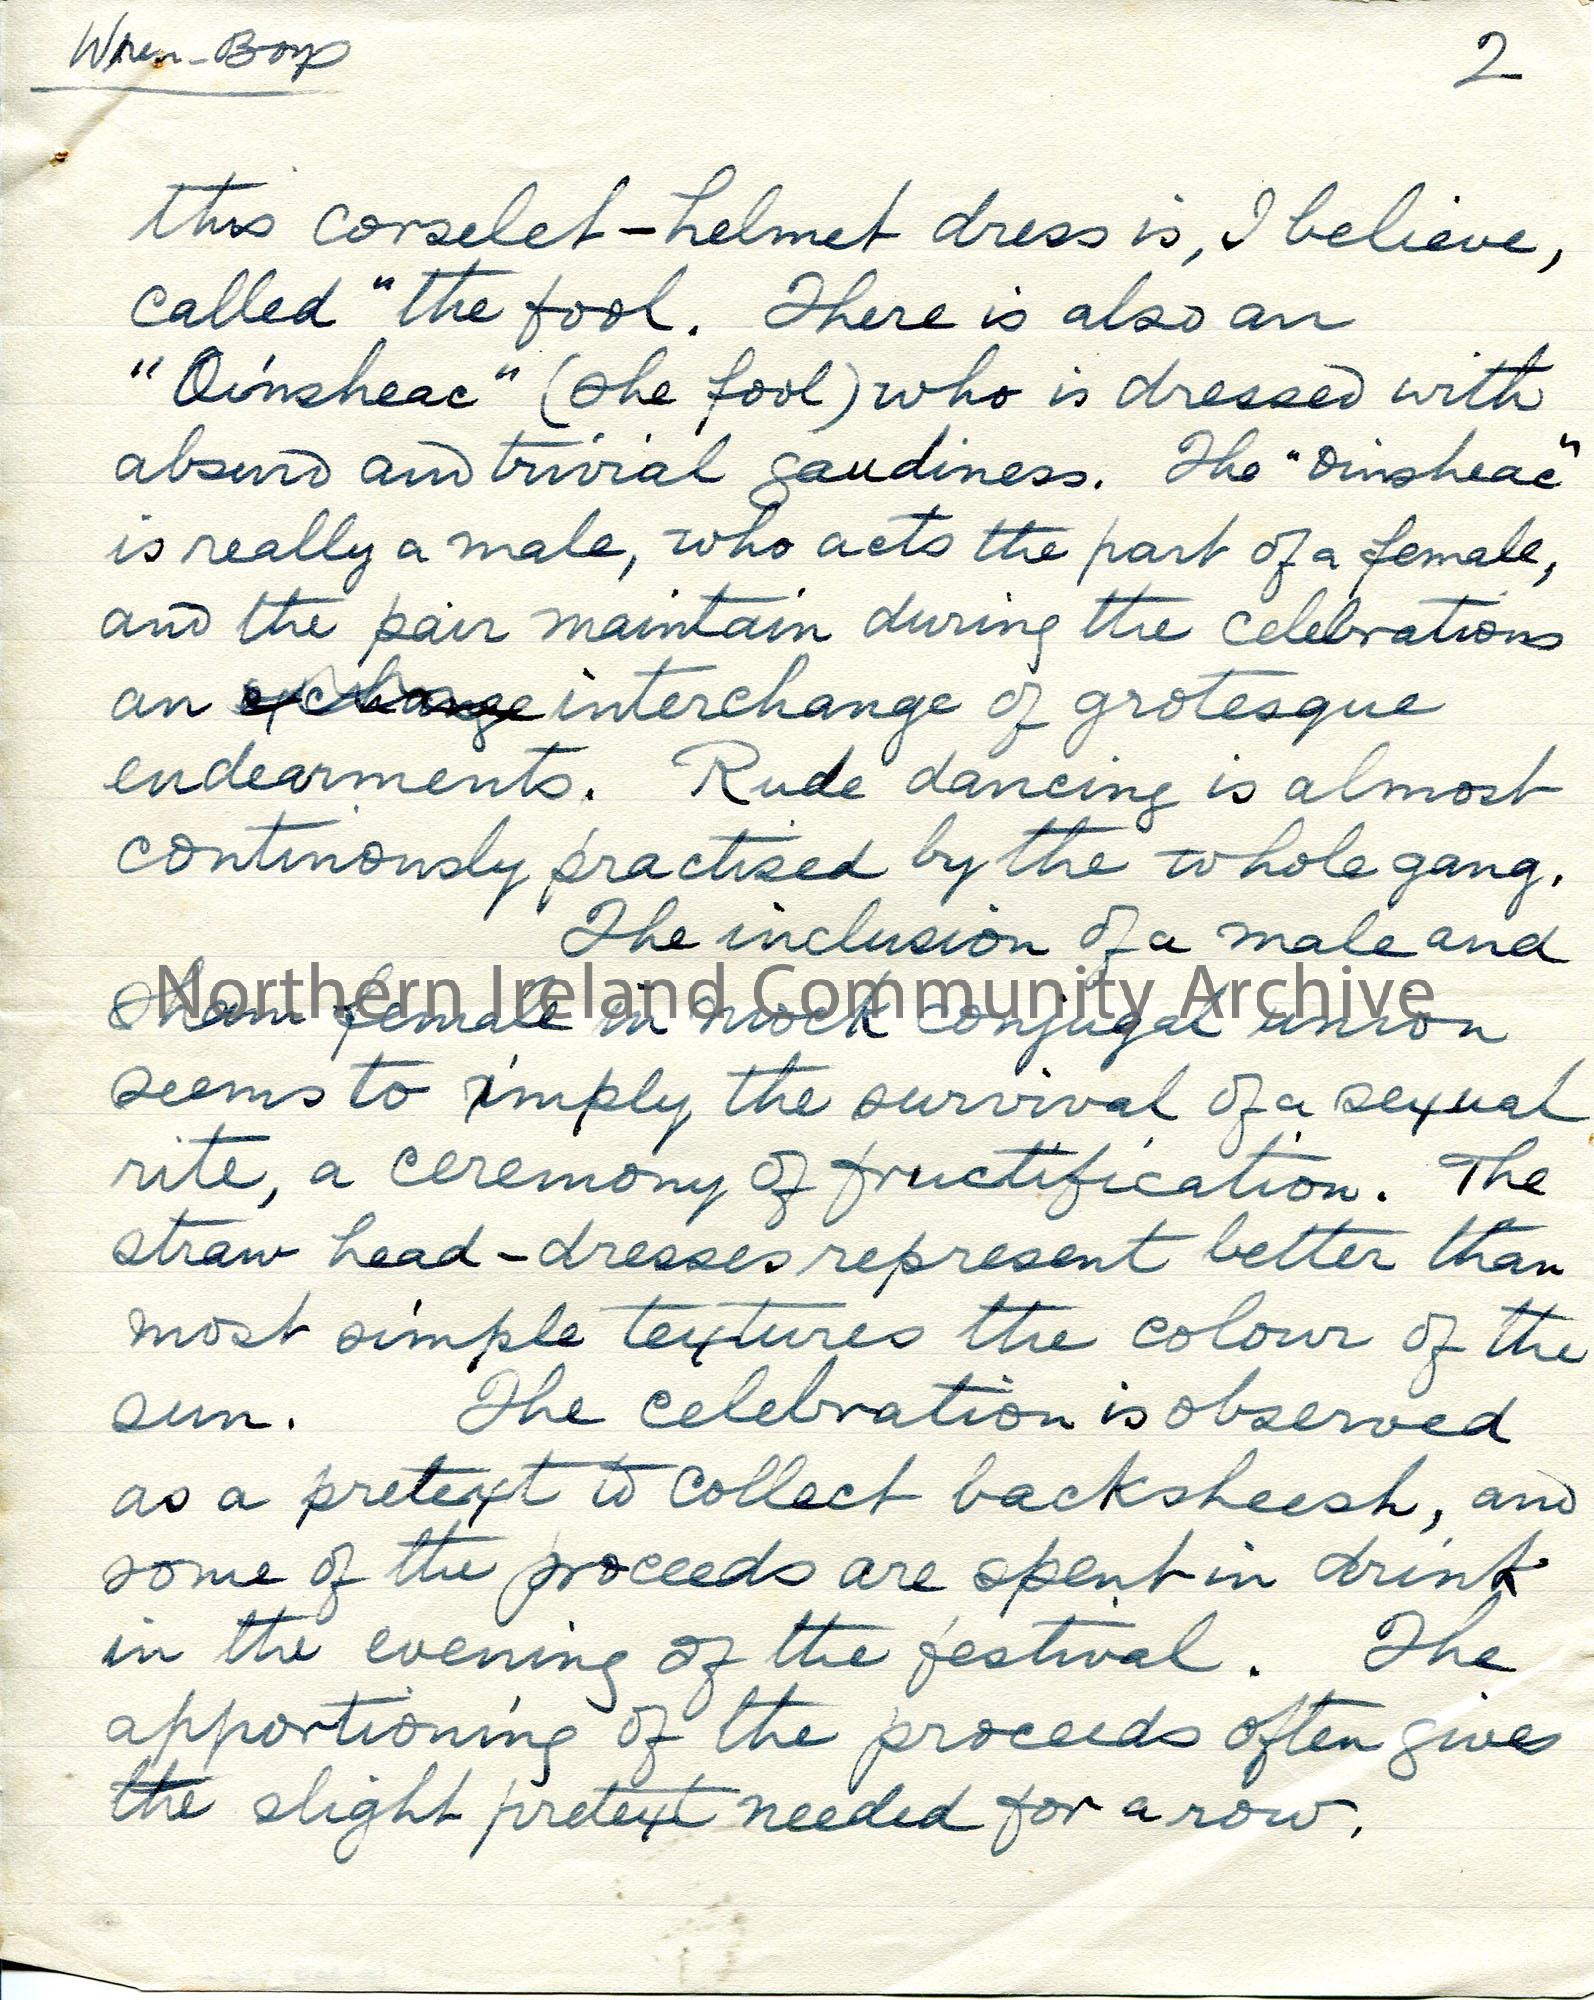 Wren-Boys
2
this corselet-helmet dress is, I believe,
called "the fool. There is also an
"Oinsheac" (she fool) who is dressed with
absurd and trivial gaudiness. The "Oinsheac"
is really a male, who acts the part of a female,
and the pair maintain during the celebrations
an exchange interchange of grotesque
endearments. Rude dancing is almost
continously practised by the whole gang.
The inclusion of a male and
Northern Ireland Community Archive
sham female in mock conjugal union
seems to imply the survival of a sexual
rite, a ceremony of fructification. The
straw head-dresses represent better than
most simple textures the colour of the
sun. The celebration is observed
as a pretext to collect backsheesh, and
some of the proceeds are spent in drink
in the evening of the festival. The
apportioning of the proceeds often gives
the slight pretext needed for a row.